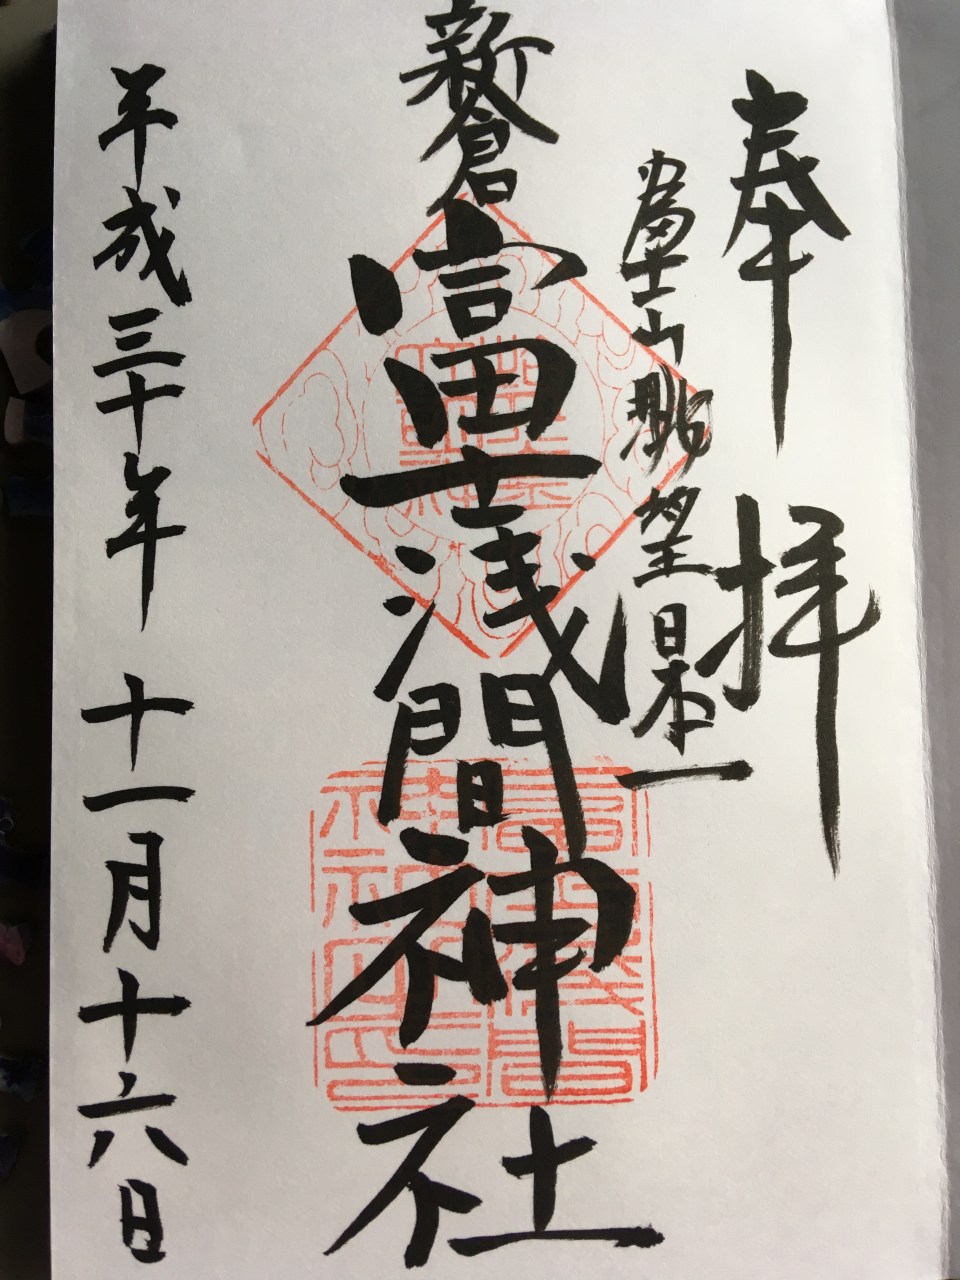 奉拝
富士山眺望日本一
新倉富士浅間神社
平成三十年 十一月十六日